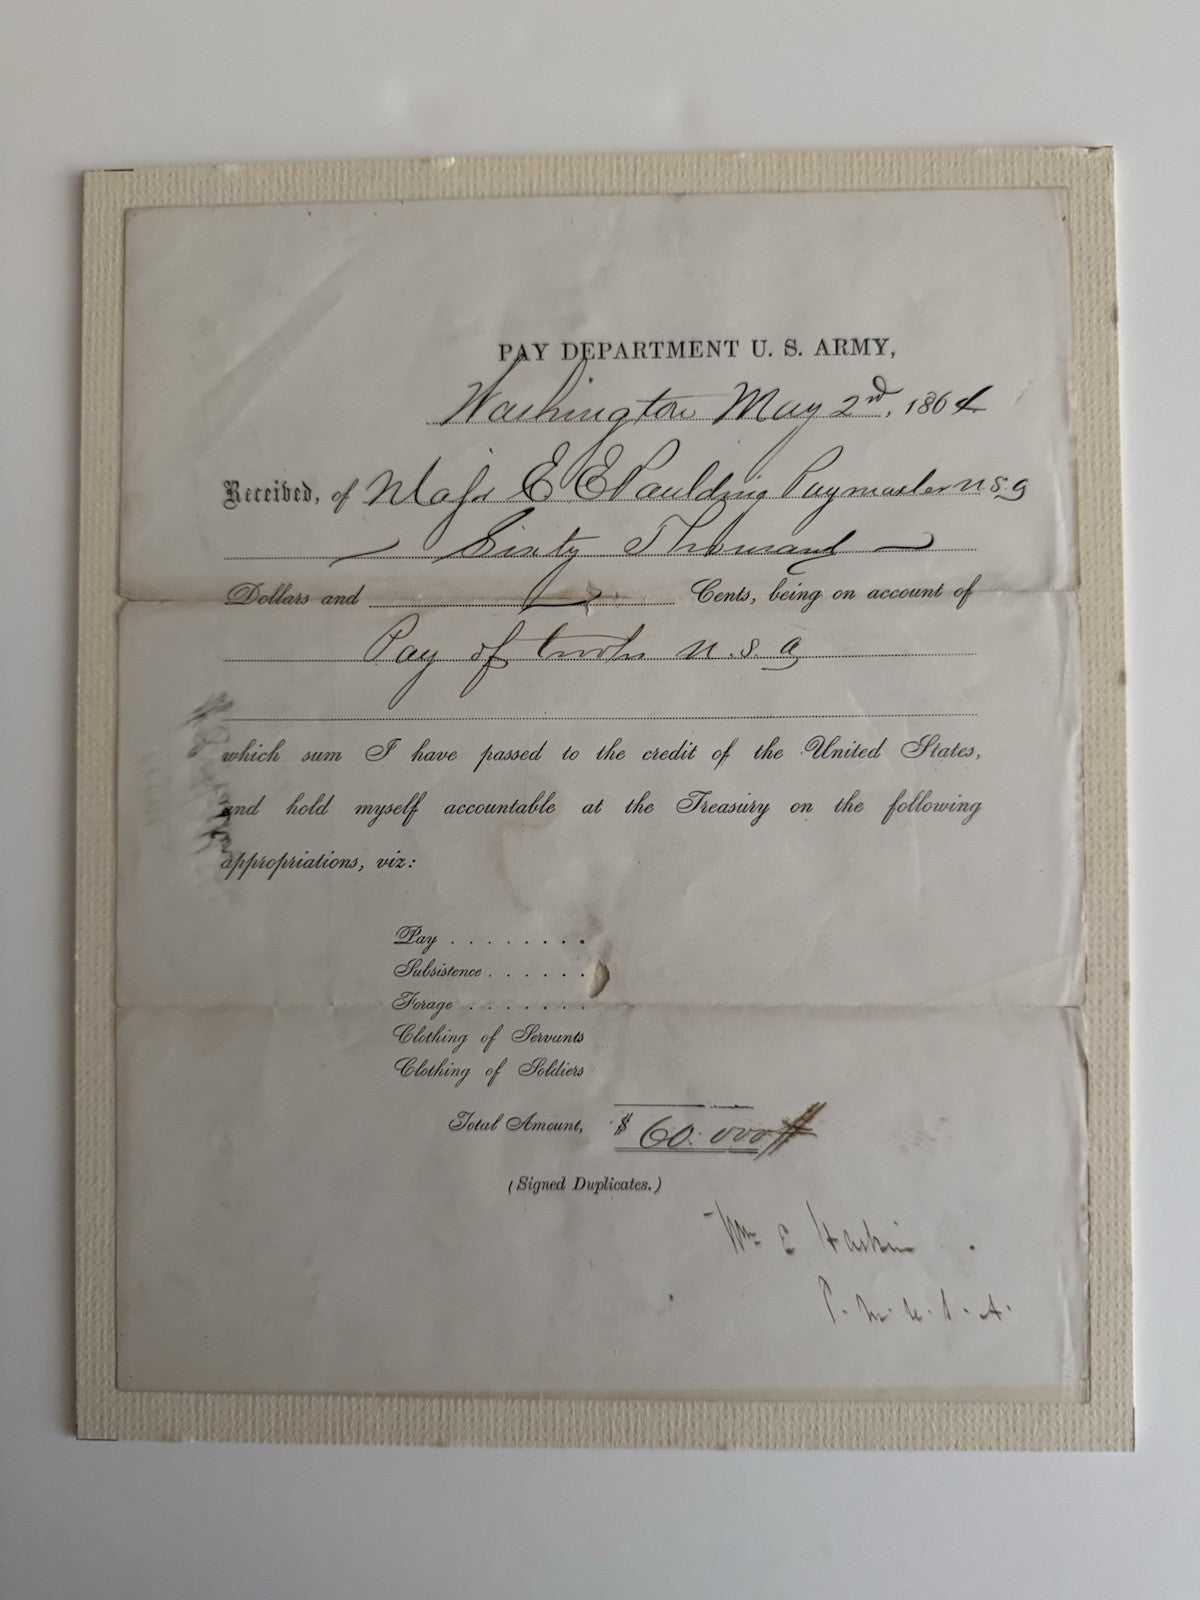 PAY DEPARTMENT U. S. ARMY,
Washington May 2nd, 1864
Received, of Major E E Paulding Paymaster U.S.A
Sixty Thousand
Dollars and Cents, being on account of
Pay of troops U.S.A
which sum I have passed to the credit of the United States,
and hold myself accountable at the Treasury on the following
appropriations, viz:
Pay . . . . . . . .
Subsistence . . . . . .
Forage . . . . . . .
Clothing of Servants
Clothing of Soldiers
Total Amount, $ 60.000
(Signed Duplicates.)
Wm E Haskin
P. M. U. S. A.